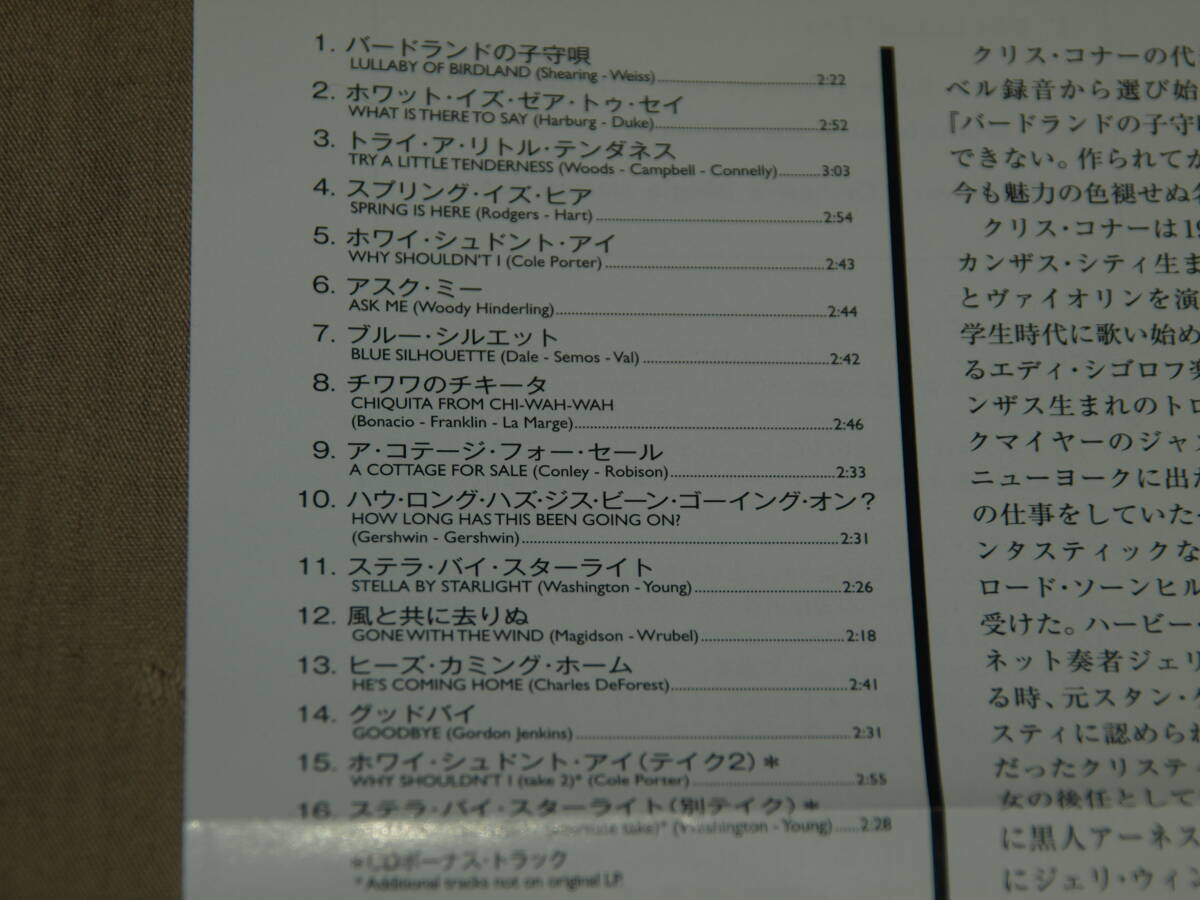 1. バードランドの子守唄
LULLABY OF BIRDLAND (Shearing - Weiss) 2:22
2. ホワット・イズ・ゼア・トゥ・セイ
WHAT IS THERE TO SAY (Harburg - Duke) 2:52
3. トライ・ア・リトル・テンダネス
TRY A LITTLE TENDERNESS (Woods - Campbell - Connelly) 3:03
4. スプリング・イズ・ヒア
SPRING IS HERE (Rodgers - Hart) 2:54
5. ホワイ・シュドント・アイ
WHY SHOULDN'T I (Cole Porter) 2:43
6. アスク・ミー
ASK ME (Woody Hinderling) 2:44
7. ブルー・シルエット
BLUE SILHOUETTE (Dale - Semos - Val) 2:42
8. チワワのチキータ
CHIQUITA FROM CHI-WAH-WAH
(Bonacio - Franklin - La Marge) 2:46
9. ア・コテージ・フォー・セール
A COTTAGE FOR SALE (Conley - Robison) 2:33
10. ハウ・ロング・ハズ・ジス・ビーン・ゴーイング・オン?
HOW LONG HAS THIS BEEN GOING ON?
(Gershwin - Gershwin) 2:31
11. ステラ・バイ・スターライト
STELLA BY STARLIGHT (Washington - Young) 2:26
12. 風と共に去りぬ
GONE WITH THE WIND (Magidson - Wrubel) 2:18
13. ヒーズ・カミング・ホーム
HE'S COMING HOME (Charles DeForest) 2:41
14. グッドバイ
GOODBYE (Gordon Jenkins) 2:31
15. ホワイ・シュドント・アイ(テイク2)*
WHY SHOULDN'T I (take 2)* (Cole Porter) 2:55
16. ステラ・バイ・スターライト(別テイク)*
take)* (Washington - Young) 2:28
*CDボーナス・トラック
* Additional tracks not on original LP.
クリス・コナーの代
ベル録音から選び始
『バードランドの子守
できない。作られてか
今も魅力の色褪せぬ
クリス・コナーは19
カンザス・シティ生ま
とヴァイオリンを演
学生時代に歌い始め
るエディ・シゴロフ
ンザス生まれのトロ
クマイヤーのジャズ
ニューヨークに出
の仕事をしていた
ンタスティックな
ロード・ソーンヒル
受けた。ハービー・
ネット奏者ジェリ
る時、元スタン・
スティに認められ
だったクリスティ
女の後任として
に黒人アーネス
にジェリ・ウィン